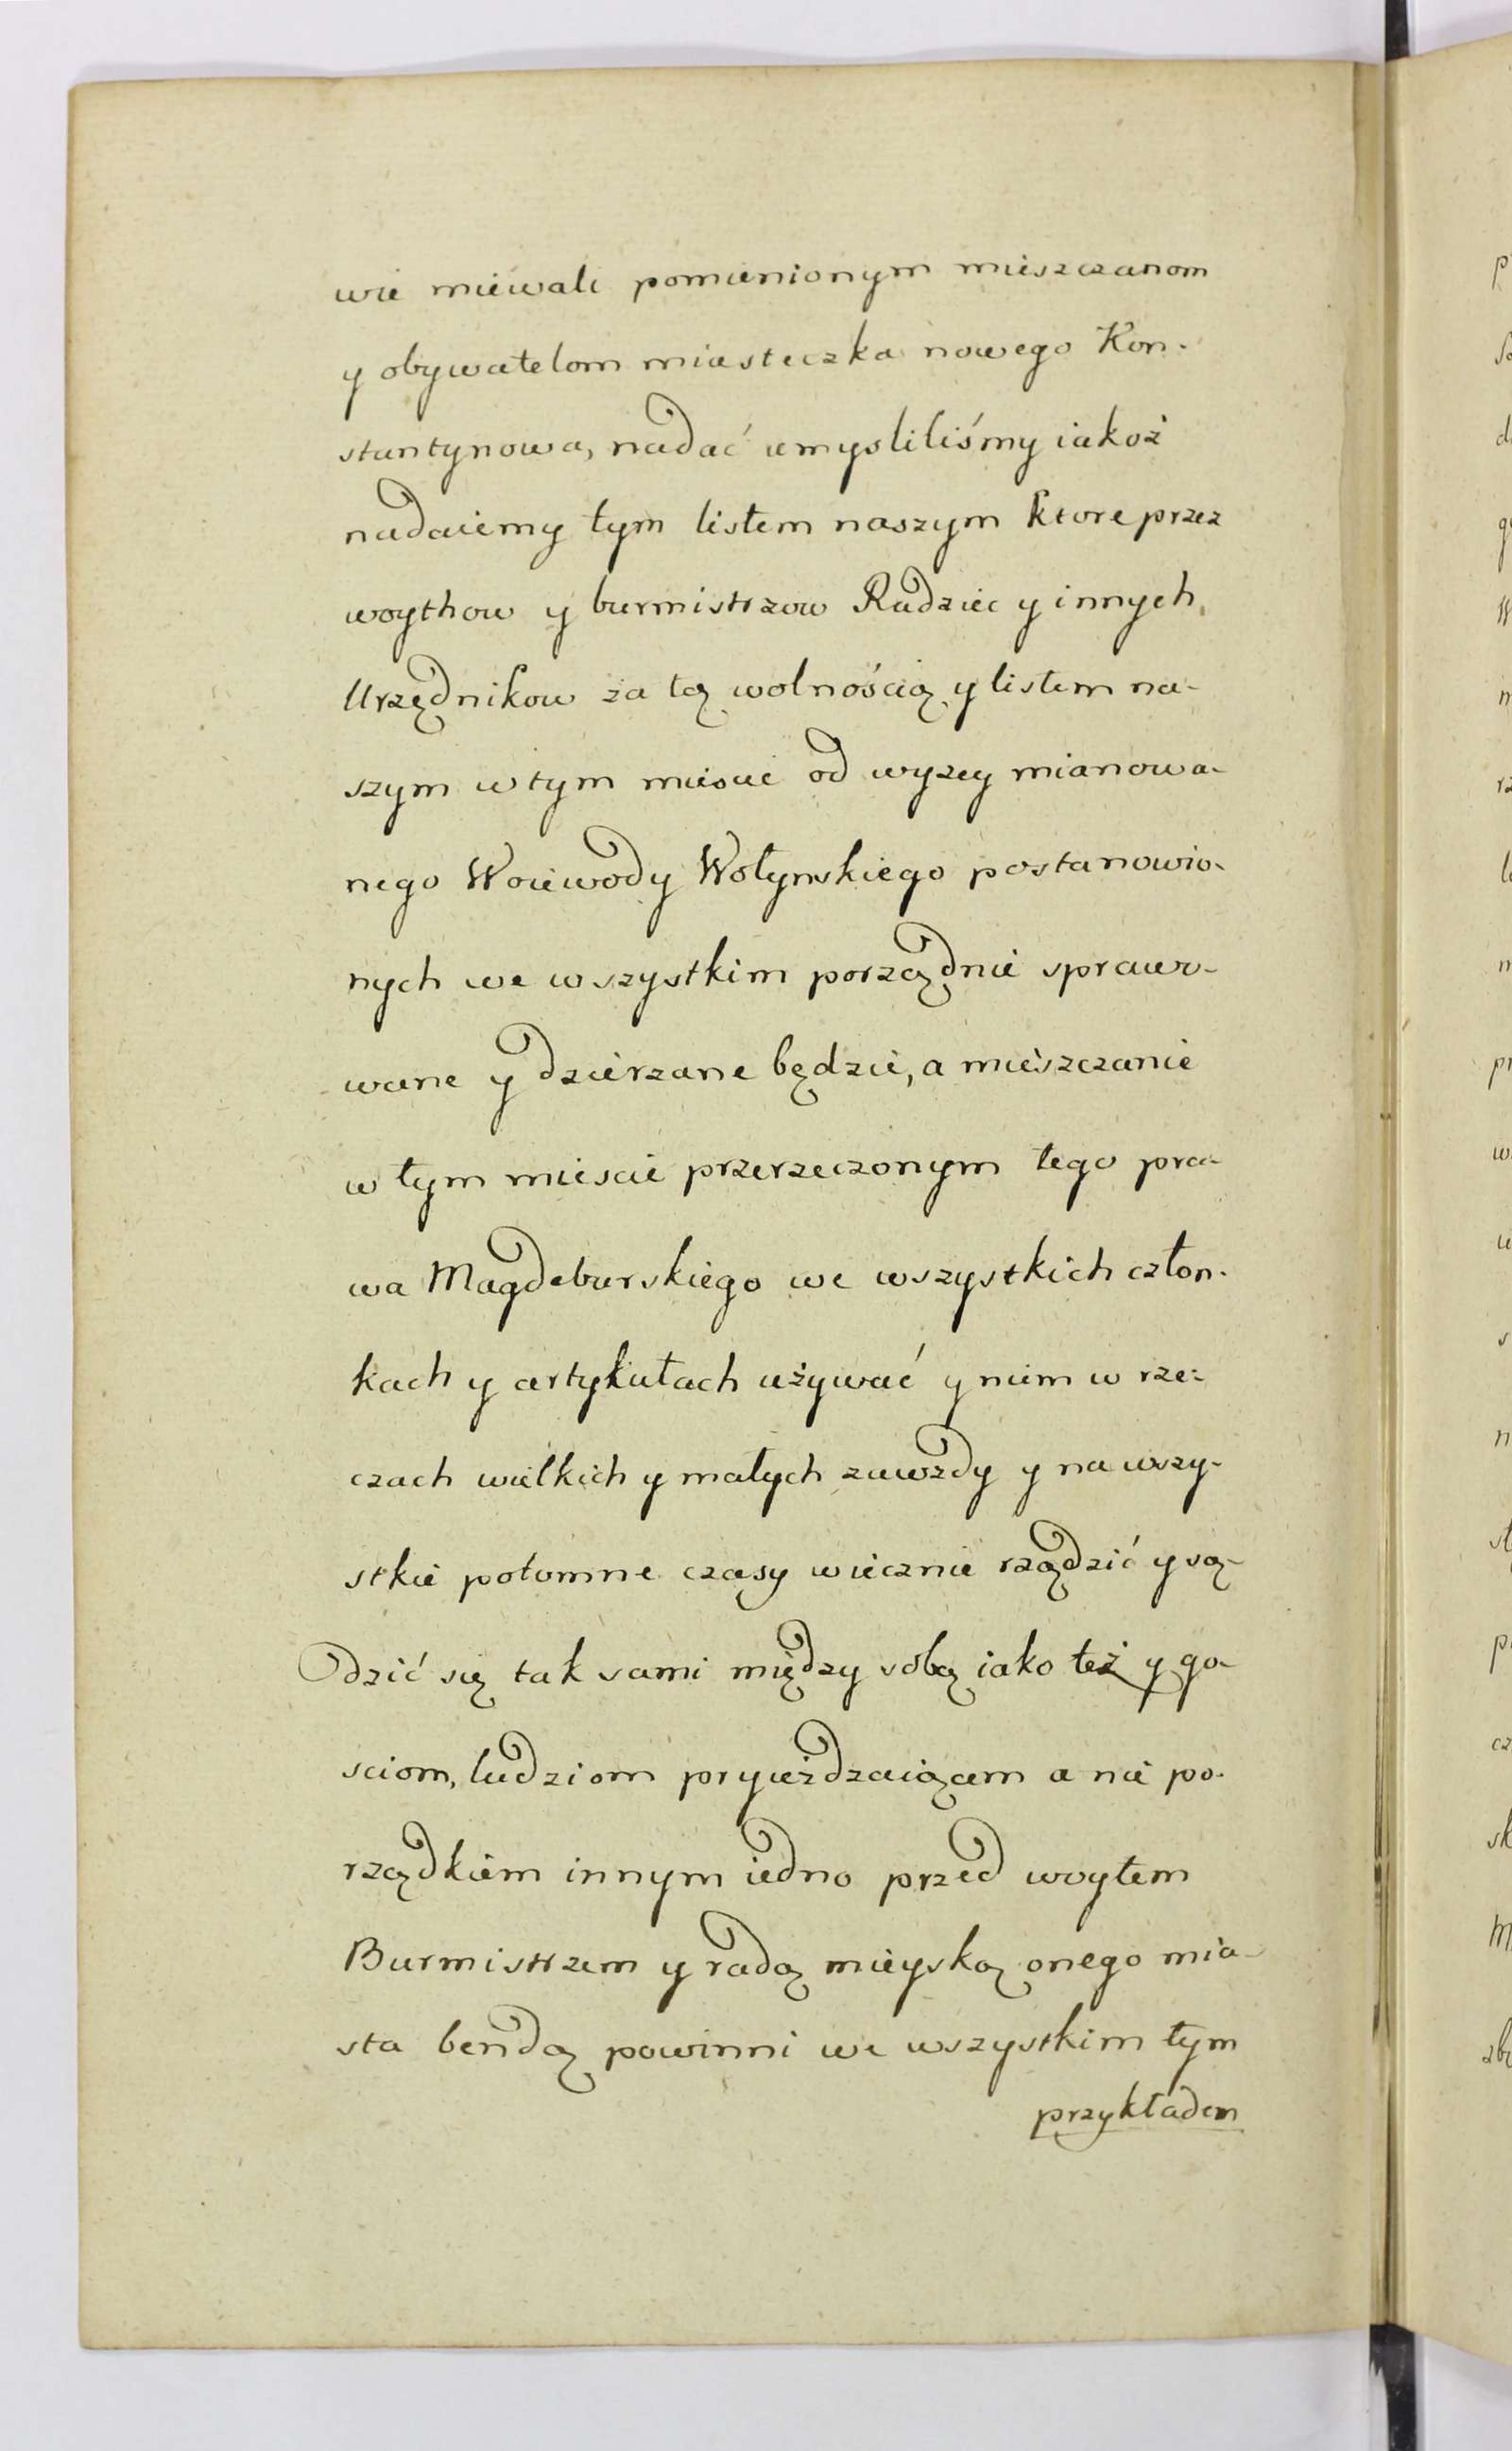 wie miewali pomienionym mieszczanom
y obywatelom miasteczka nowego Kon-
stantynowa, nadać umysliliśmy iakoż
nadaiemy tym listem naszym ktore przez
woythow y burmistrzow Radziec y innych
Urzędnikow za tą wolnością y listem na-
szym w tym miescie od wyzey mianowa-
nego Woiewody Wołynskiego postanowio-
nych we wszystkim porządnie sprawo-
wane y dzierzane będzie, a mieszczanie
w tym miescie przerzeczonym tego pra-
wa Magdeburskiego we wszystkich człon-
kach y artykułach używać y nim w rze-
czach wielkich y małych zawzdy y na wszy-
stkie potomne czasy wiecznie rządzić y są-
dzić się tak sami między sobą iako też y go-
sciom, ludziom pryieżdzaiącem a nie po-
rządkiem innym iedno przed woytem
Burmistrzem y radą mieyską onego mia-
sta bendą powinni we wszystkim tym
przykładem